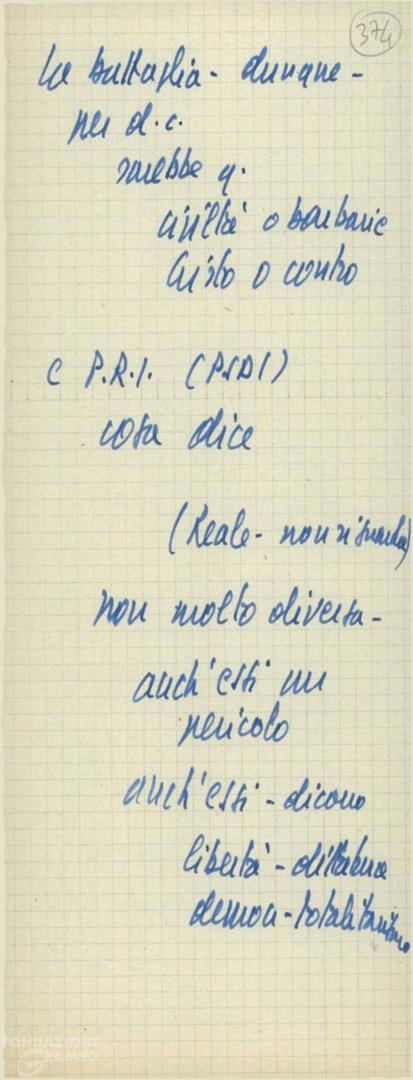 374
La battaglia - dunque -
per d.c.
sarebbe q.
civiltà o barbarie
Cristo o contro
e P.R.I. (PSDI)
cosa dice
(Reale - non
non molto diversa -
anch'essi un
pericolo
anch'essi - dicono
libertà - dittatura
democr - totalitarismo
FONDAZIONE
GRAMSCI